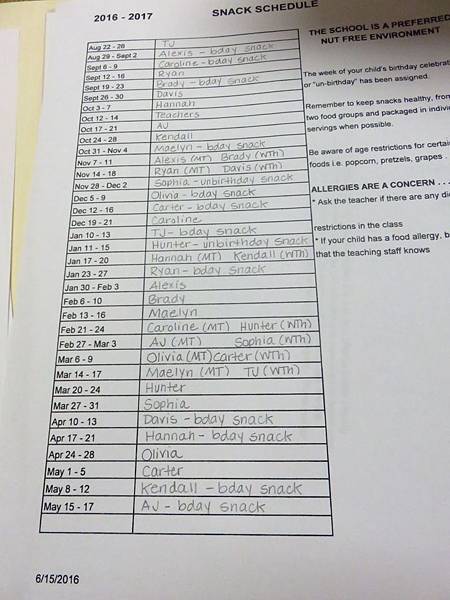 2016 - 2017
SNACK SCHEDULE
Aug 22 - 26 TJ
Aug 29 - Sept 2 Alexis - bday snack
Sept 6 - 9 Caroline - bday snack
Sept 12 - 16 Ryan
Sept 19 - 23 Brady - bday snack
Sept 26 - 30 Davis
Oct 3 - 7 Hannah
Oct 12 - 14 Teachers
Oct 17 - 21 AJ
Oct 24 - 28 Kendall
Oct 31 - Nov 4 Maelyn - bday snack
Nov 7 - 11 Alexis (MT) Brady (WTh)
Nov 14 - 18 Ryan (MT) Davis (WTh)
Nov 28 - Dec 2 Sophia - unbirthday snack
Dec 5 - 9 Olivia - bday snack
Dec 12 - 16 Carter - bday snack
Dec 19 - 21 Caroline
Jan 10 - 13 TJ - bday snack
Jan 11 - 15 Hunter - unbirthday snack
Jan 17 - 20 Hannah (MT) Kendall (WTh)
Jan 23 - 27 Ryan - bday snack
Jan 30 - Feb 3 Alexis
Feb 6 - 10 Brady
Feb 13 - 16 Maelyn
Feb 21 - 24 Caroline (MT) Hunter (WTh)
Feb 27 - Mar 3 AJ (MT) Sophia (WTh)
Mar 6 - 9 Olivia (MT) Carter (WTh)
Mar 14 - 17 Maelyn (MT) TJ (WTh)
Mar 20 - 24 Hunter
Mar 27 - 31 Sophia
Apr 10 - 13 Davis - bday snack
Apr 17 - 21 Hannah - bday snack
Apr 24 - 28 Olivia
May 1 - 5 Carter
May 8 - 12 Kendall - bday snack
May 15 - 17 AJ - bday snack
6/15/2016
THE SCHOOL IS A PREFERRED
NUT FREE ENVIRONMENT
The week of your child's birthday celebrat
or "un-birthday" has been assigned.
Remember to keep snacks healthy, from
two food groups and packaged in individ
servings when possible.
Be aware of age restrictions for certai
foods i.e. popcorn, pretzels, grapes .
ALLERGIES ARE A CONCERN . . .
* Ask the teacher if there are any di
restrictions in the class
* If your child has a food allergy, b
that the teaching staff knows